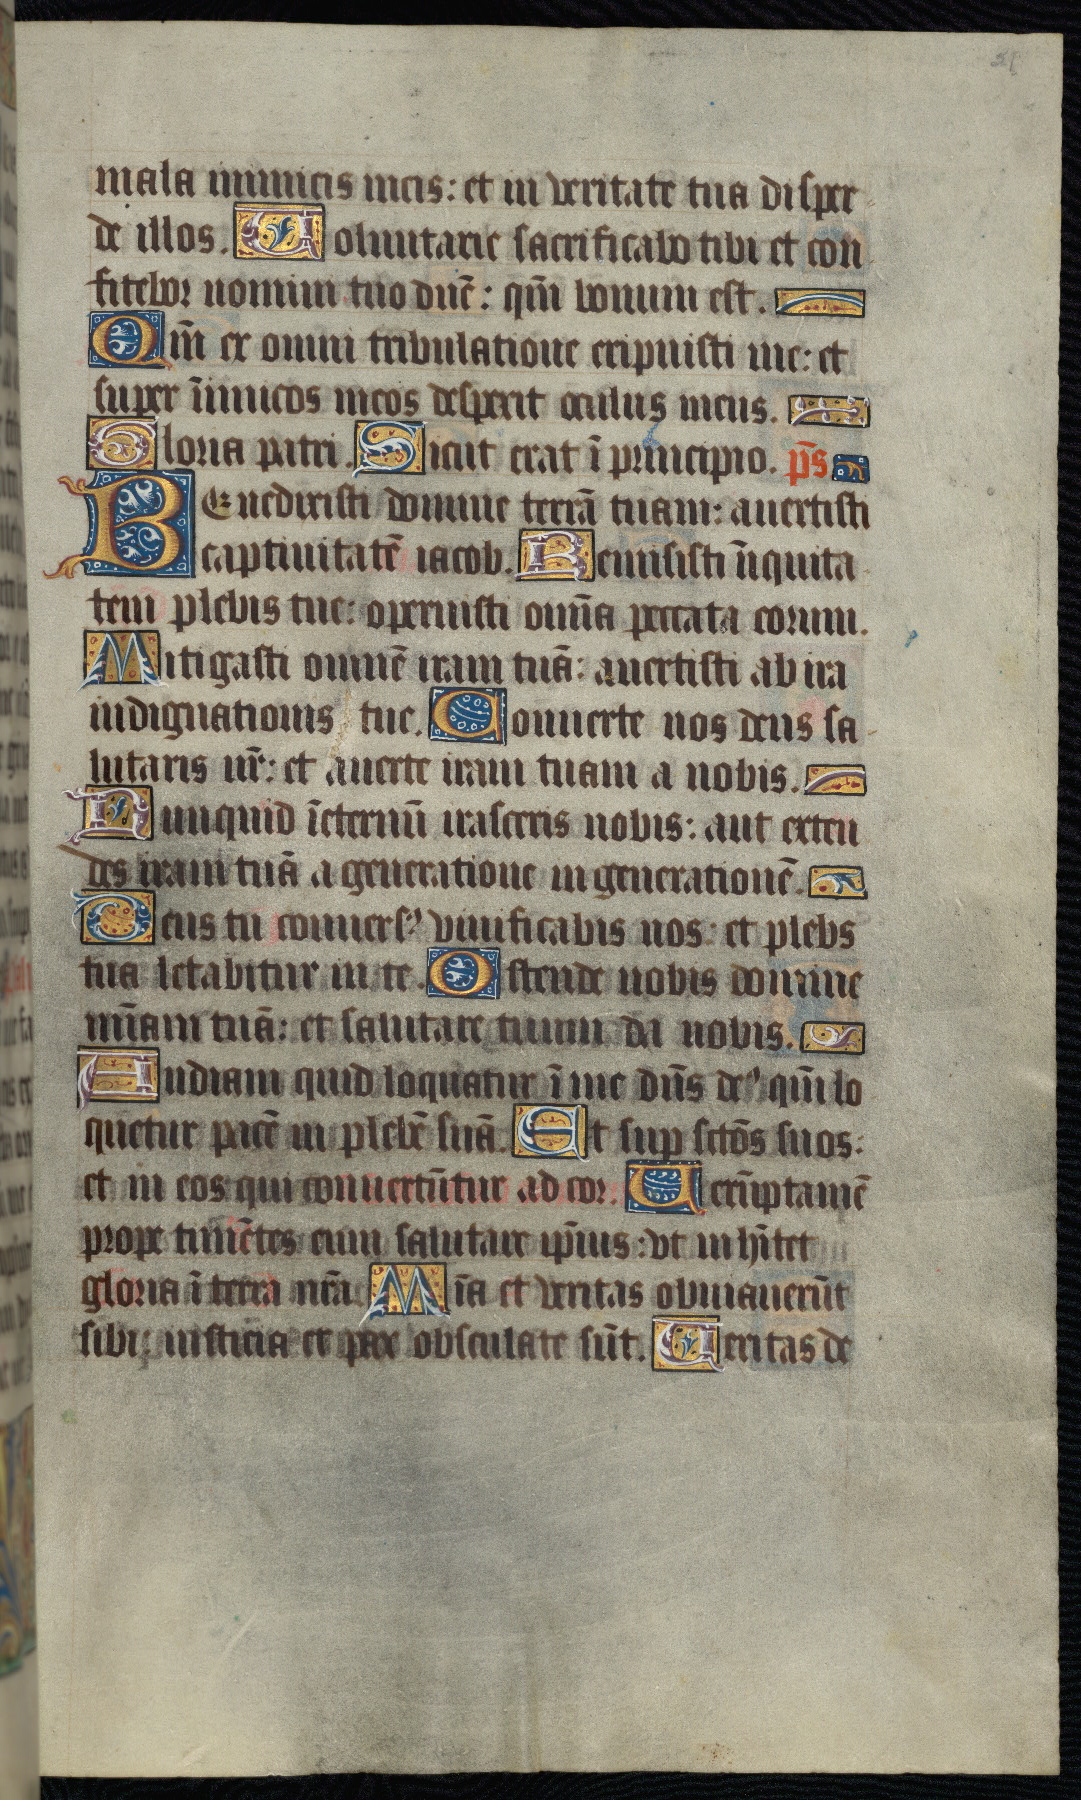 21
mala inimicis meis: et in veritate tua disper
de illos. Voluntarie sacrificabo tibi et con
fitebor nomini tuo dn̄e: qm̄ bonum est.
Qm̄ ex omni tribulatione eripuisti me: et
super īimicos meos despexit oculus meus.
Gloria patri. Sicut erat ī principio. ps̄
Benedixisti domine terrā tuam: auertisti
captiuitatē iacob. Remisisti īiquita
tem plebis tue: operuisti omīa peccata eorum.
Mitigasti omnē iram tuā: auertisti ab ira
indignationis tue. Conuerte nos deus sa
lutaris nr̄: et auerte iram tuam a nobis.
Nunquid īeternū irasceris nobis: aut exten
des iram tuā a generatione in generationē.
Deus tu conuersꝰ viuificabis nos: et plebs
tua letabitur in te. Ostende nobis domine
mīam tuā: et salutare tuum da nobis.
Audiam quid loquatur ī me dn̄s deꝰ qm̄ lo
quetur pacē in plebē suā. Et sup sctōs suos:
et in eos qui conuertūtur ad cor. Uerūptamē
prope timētes eum salutare ip̄ius: vt inhītet
gloria ī terra nr̄a. Mīa et veritas obuiauerūt
sibi: iusticia et pax obsculate sūt. Ueritas de